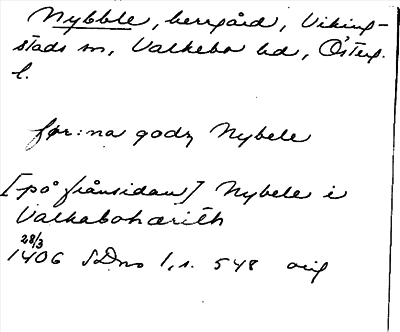 Nybble, herrgård, Viking-
stads sn, Valkebo hd, Österg.
l.
før:na godz Nybele
[på frånsidan] Nybele i
Valkabohærith
28/3
1406 SDns 1, s. 548 orig